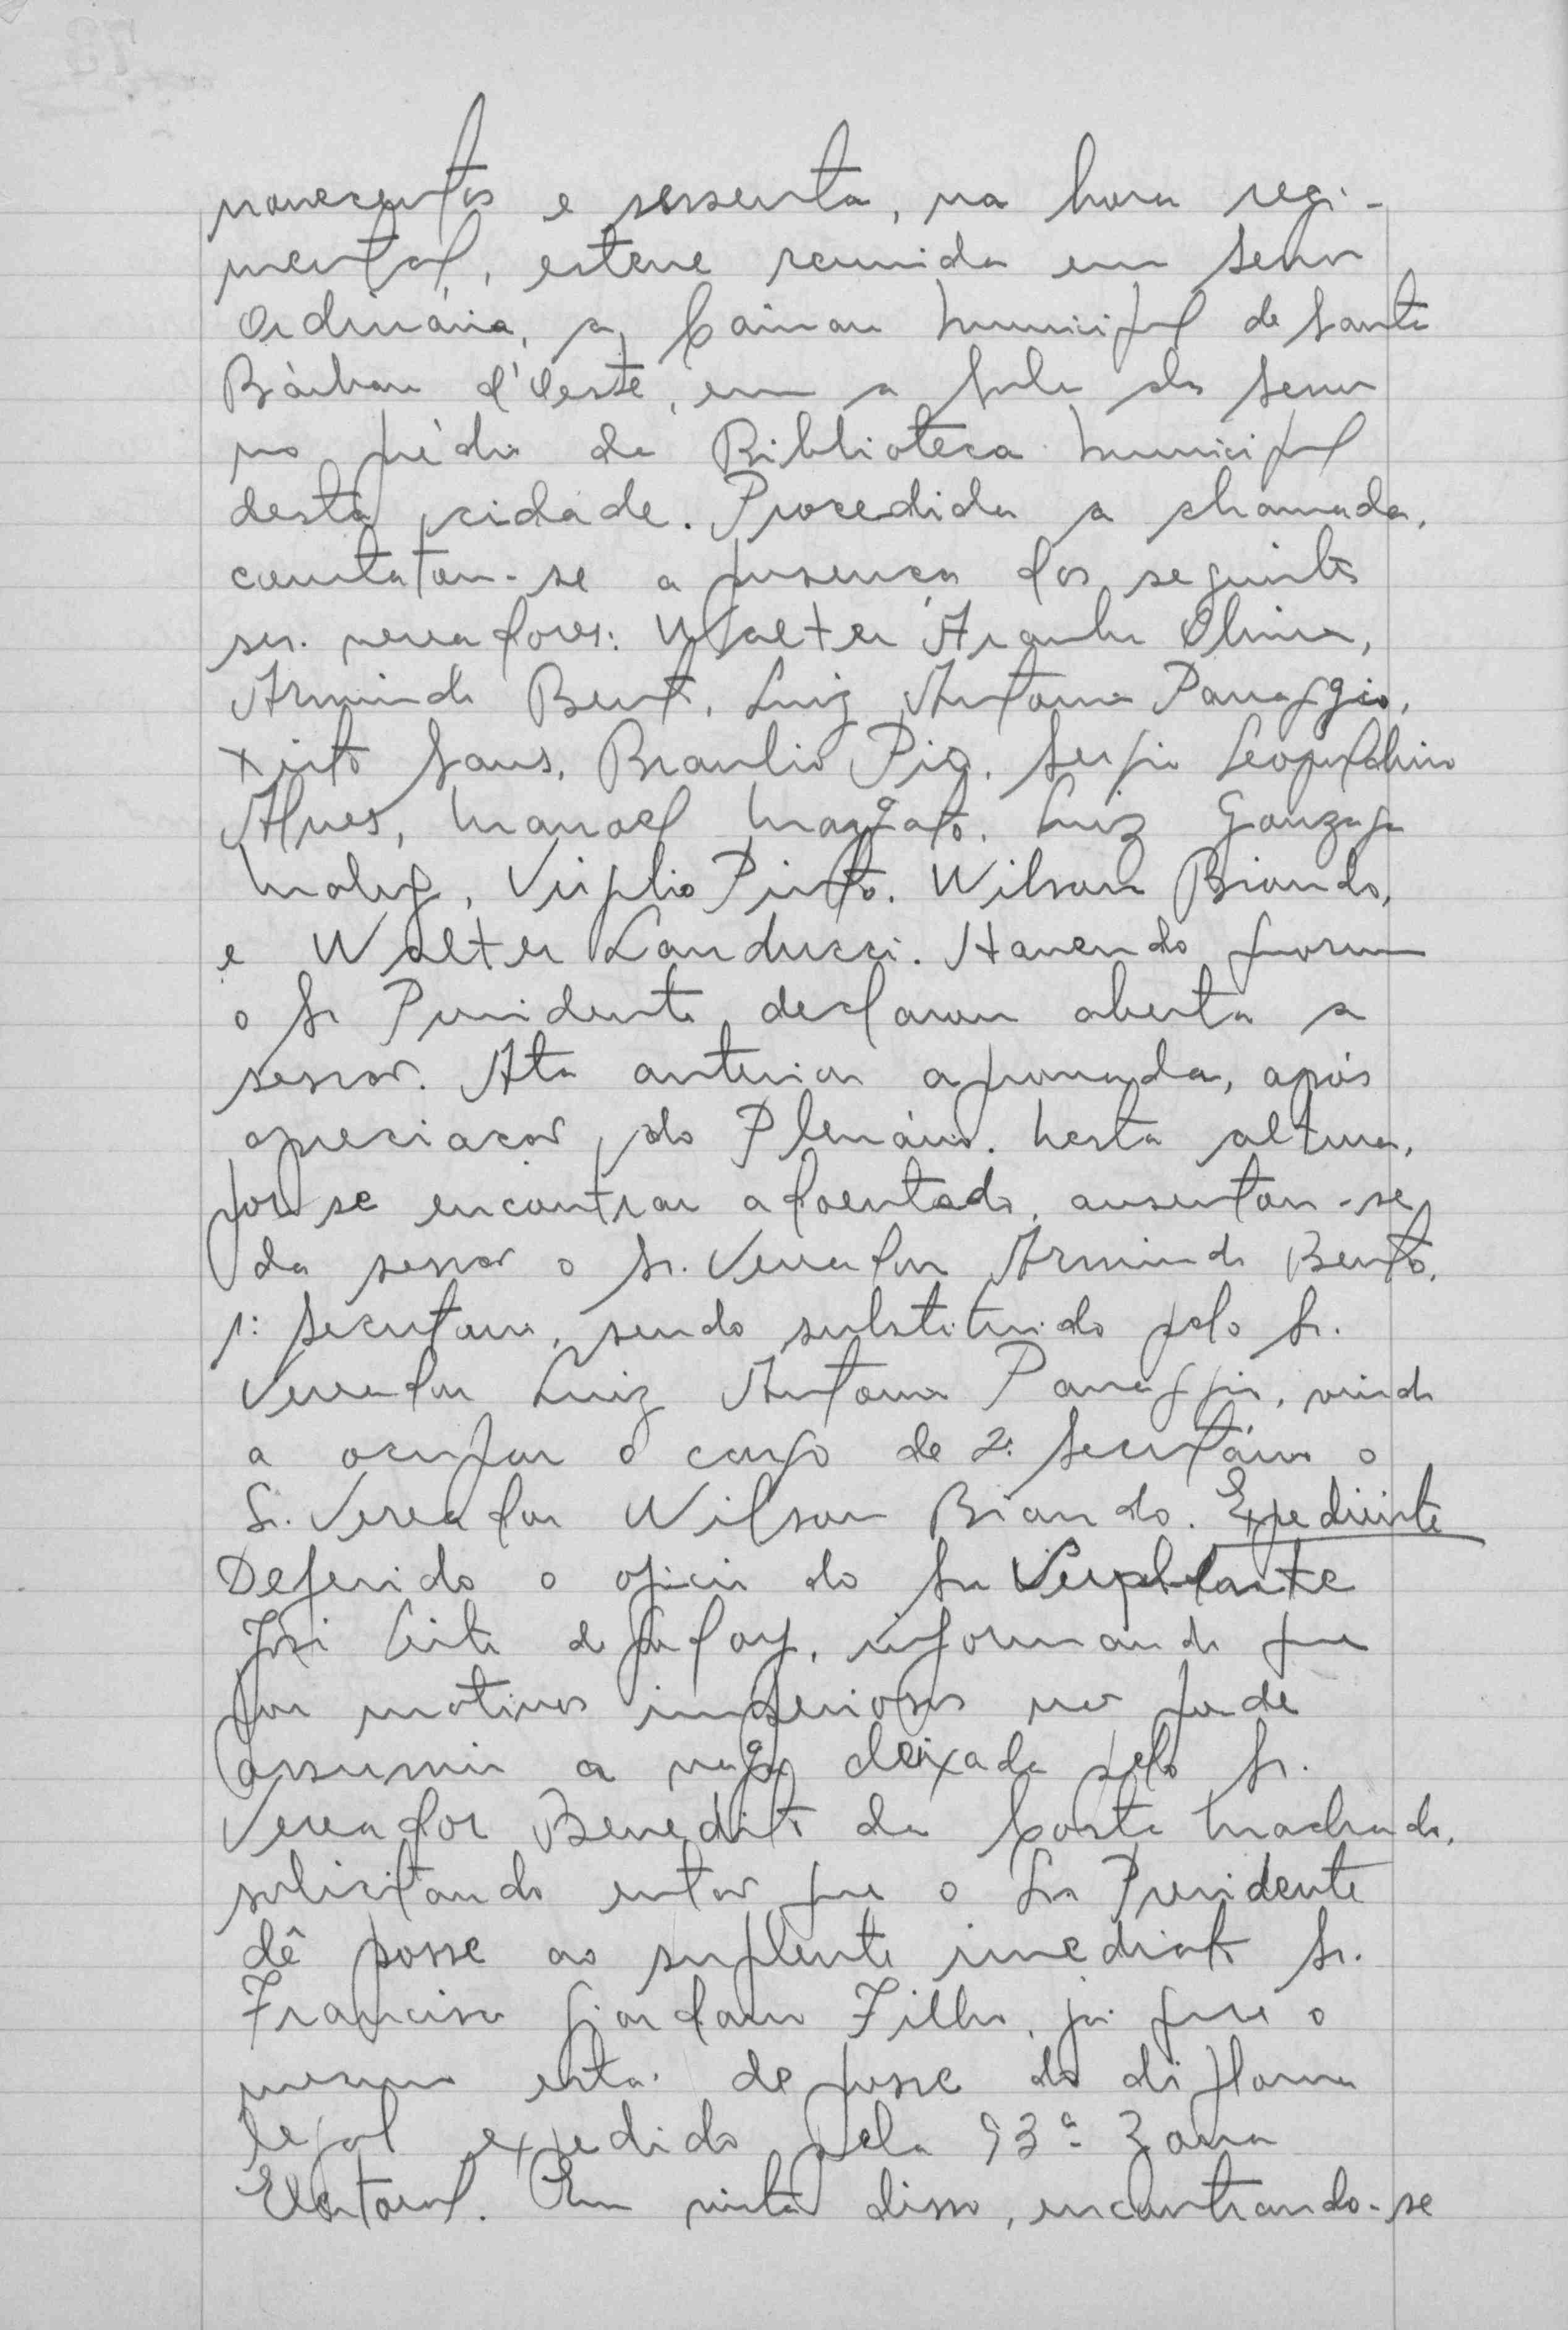 novecentos e sessenta, na hora regi-
mental, esteve reunida em sessão
Ordinária, a Câmara Municipal de Santa
Bárbara d'Oeste, em a sala da sessão
no prédio da Biblioteca Municipal
desta cidade. Procedida a chamada,
constatou-se a presença dos seguintes
srs. vereadores: Walter Aranha Oliveira,
Armindo Bento, Luiz Antonio Panaggio,
Xisto Saus, Braulio Pio, Sergio Leopoldino
Alves, Manoel Morgato, Luiz Gonzaga
Virgilio Pinto, Wilson Briando,
e Walter Landucci. Havendo quorum
o Sr Presidente declarou aberta a
sessão. Ata anterior aprovada, após
apreciação do Plenário. Nesta altura,
por se encontrar adoentado, ausentou-se
da sessão o Sr. Vereador Armindo Bento,
1º Secretario, sendo substituido pelo Sr.
Vereador Luiz Antonio Panaggio, vindo
a ocupar o cargo de 2º Secretário o
Sr. Vereador Wilson Briando. Expediente
Deferido o oficio do Sr
José Leite de informando que
por motivos imperiosos não pode
assumir a vaga deixada pelo Sr.
Vereador Benedito da Costa Machado,
solicitando então que o Sr Presidente
dê posse ao suplente imediato Sr.
Francisco Giordano Filho, já que o
mesmo está de posse do diploma
legal expedido pela 93ª Zona
Eleitoral. Em vista disso, encontrando-se